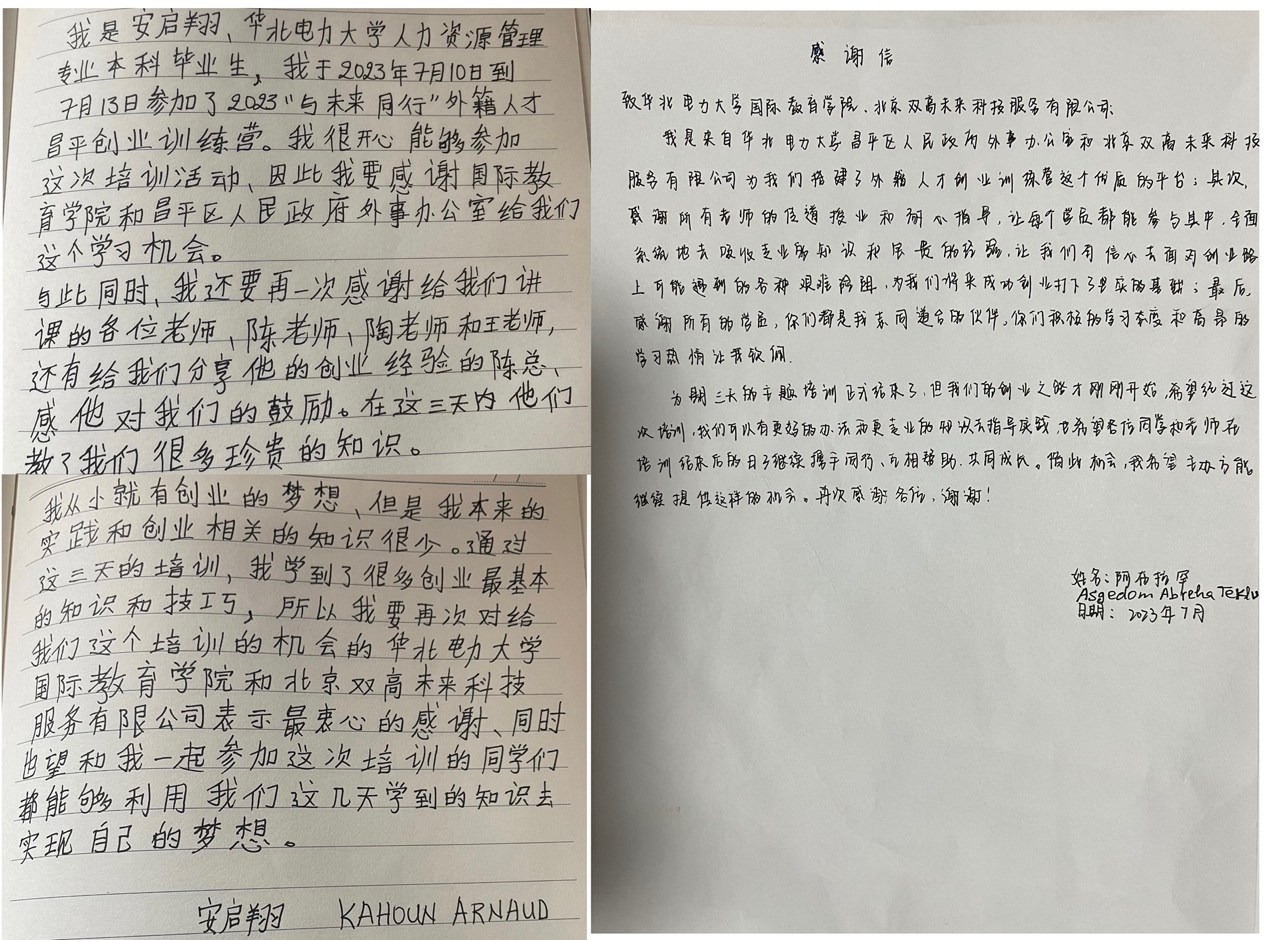 我是安启翔、华北电力大学人力资源管理
专业本科毕业生，我于2023年7月10日到
7月13日参加了2023“与未来同行”外籍人才
昌平创业训练营。我很开心能够参加
这次培训活动、因此我要感谢国际教
育学院和昌平区人民政府外事办公室给我们
这个学习机会。
与此同时、我还要再一次感谢给我们讲
课的各位老师、陈老师、陶老师和王老师，
还有给我们分享他的创业经验的陈总、
感他对我们的鼓励。在这三天内他们
教了我们很多珍贵的知识。
我从小就有创业的梦想、但是我本来的
实践和创业相关的知识很少。通过
这三天的培训，我学到了很多创业最基本
的知识和技巧，所以我要再次对给
我们这个培训的机会的华北电力大学
国际教育学院和北京双高未来科技
服务有限公司表示最衷心的感谢、同时
也望和我一起参加这次培训的同学们
都能够利用我们这几天学到的知识去
实现自己的梦想。
安启翔 KAHOUN ARNAUD
感谢信
致华北电力大学国际教育学院、北京双高未来科技服务有限公司:
我是来自华北电力大学昌平区人民政府外事办公室和北京双高未来科技
服务有限公司为我们搭建了外籍人才创业训练营这个优质的平台；其次，
感谢所有老师的传道授业和耐心指导，让每个学员都能参与其中，全面
系统地去吸收专业的知识和宝贵的经验，让我们有信心去面对创业路
上可能遇到的各种艰难险阻，为我们将来成功创业打下了坚实的基础；最后，
感谢所有的学员，你们都是我志同道合的伙伴，你们积极的学习态度和高昂的
学习热情让我钦佩.
为期三天的主题培训正式结束了，但我们的创业之路才刚刚开始，希望经过这
次培训，我们可以有更好的办法和更专业的知识去指导实践，也希望各位同学和老师在
培训结束后的日子继续携手同行、互相帮助、共同成长。借此机会，我希望主办方能
继续提供这样的机会。再次感谢各位，谢谢！
姓名：阿布拉罕
Asgedom Abreha Teklu
日期：2023年7月